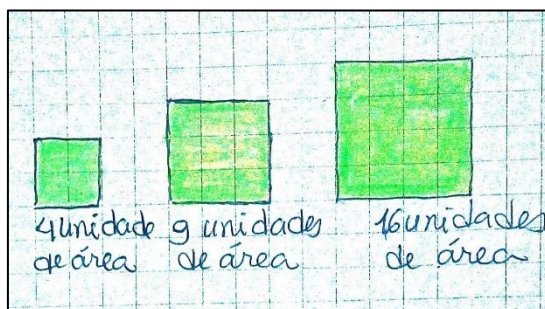 4 unidade
de área
9 unidades
de área
16 unidades
de área